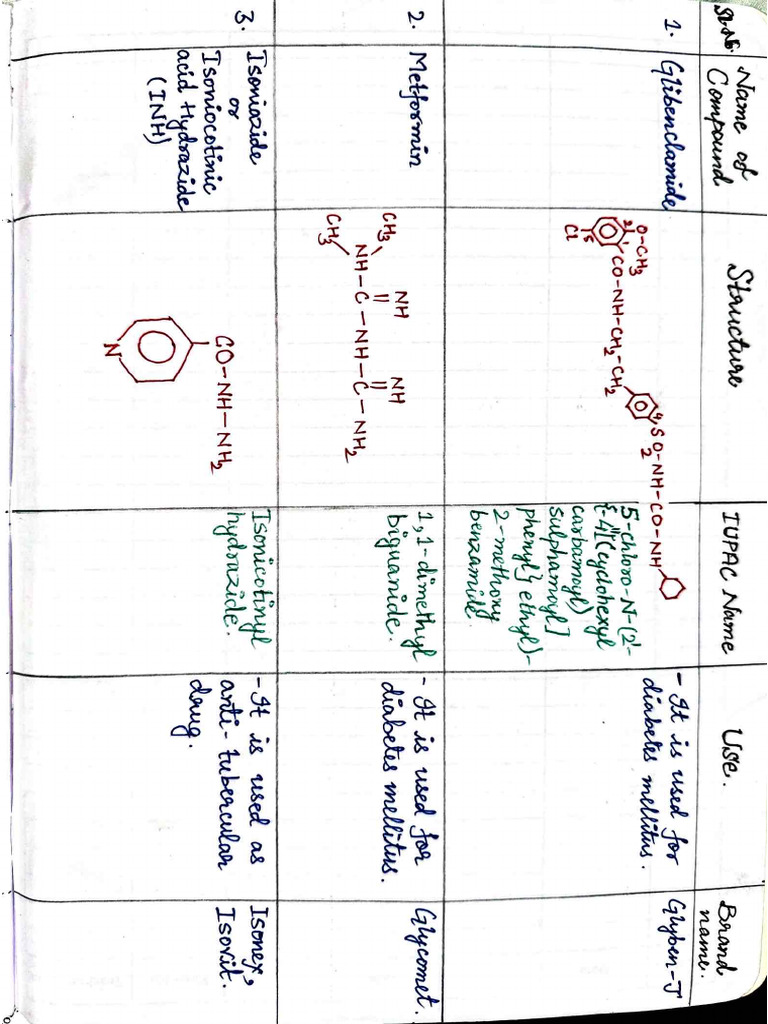 Sl.No. Name of Compound Structure IUPAC Name Use. Brand name.
1. Glibenclamide
O-CH3
2' 1'
CO-NH-CH2-CH2
5
Cl
4 SO2-NH-CO-NH
5-chloro-N-(2'-
{-4"[(cyclohexyl
carbamoyl)
sulphamoyl]
phenyl} ethyl)-
2-methoxy
benzamide.
- It is used for
diabetes mellitus.
Glyben-J
2. Metformin
CH3 NH NH
NH-C-NH-C-NH2
CH3
1,1-dimethyl
biguanide.
- It is used for
diabetes mellitus.
Glycomet.
3. Isoniozide
or
Isoniocotinic
acid Hydrazide
(INH)
CO-NH-NH2
N
Isonicotinyl
hydrazide.
- It is used as
anti-tubercular
drug.
Isonex,
Isovit.